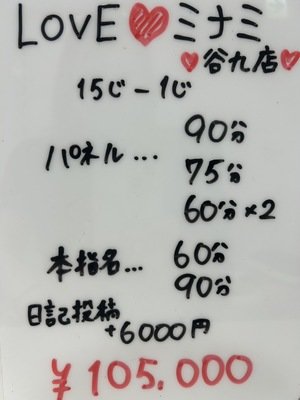 LOVE♥ミナミ
♥谷九店♥
15じ-1じ
パネル... 90分
75分
60分×2
本指名... 60分
90分
日記投稿
+6000円
¥105.000